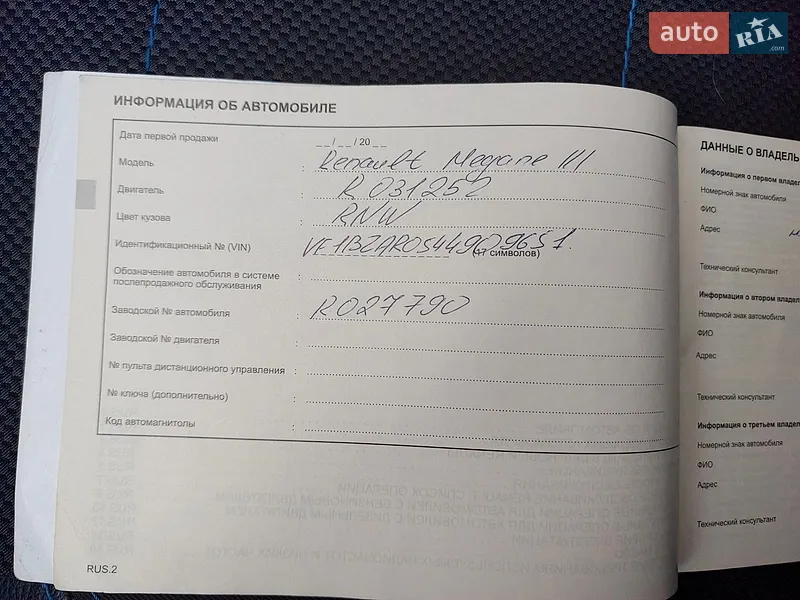 auto RIA .com
ИНФОРМАЦИЯ ОБ АВТОМОБИЛЕ
Дата первой продажи _ _ / _ _ / 20 _ _
Модель : Renault Megane III
Двигатель : R 031252
Цвет кузова : RNW
Идентификационный № (VIN) VF1BZAR0544909651. (17 символов)
Обозначение автомобиля в системе
послепродажного обслуживания :
Заводской № автомобиля : R027790
Заводской № двигателя :
№ пульта дистанционного управления :
№ ключа (дополнительно) :
Код автомагнитолы :
RUS.2
ДАННЫЕ О ВЛАДЕЛЬ
Информация о первом владел
Номерной знак автомобиля
ФИО
Адрес
Технический консультант
Информация о втором владел
Номерной знак автомобиля
ФИО
Адрес
Технический консультант
Информация о третьем владел
Номерной знак автомобиля
ФИО
Адрес
Технический консультант